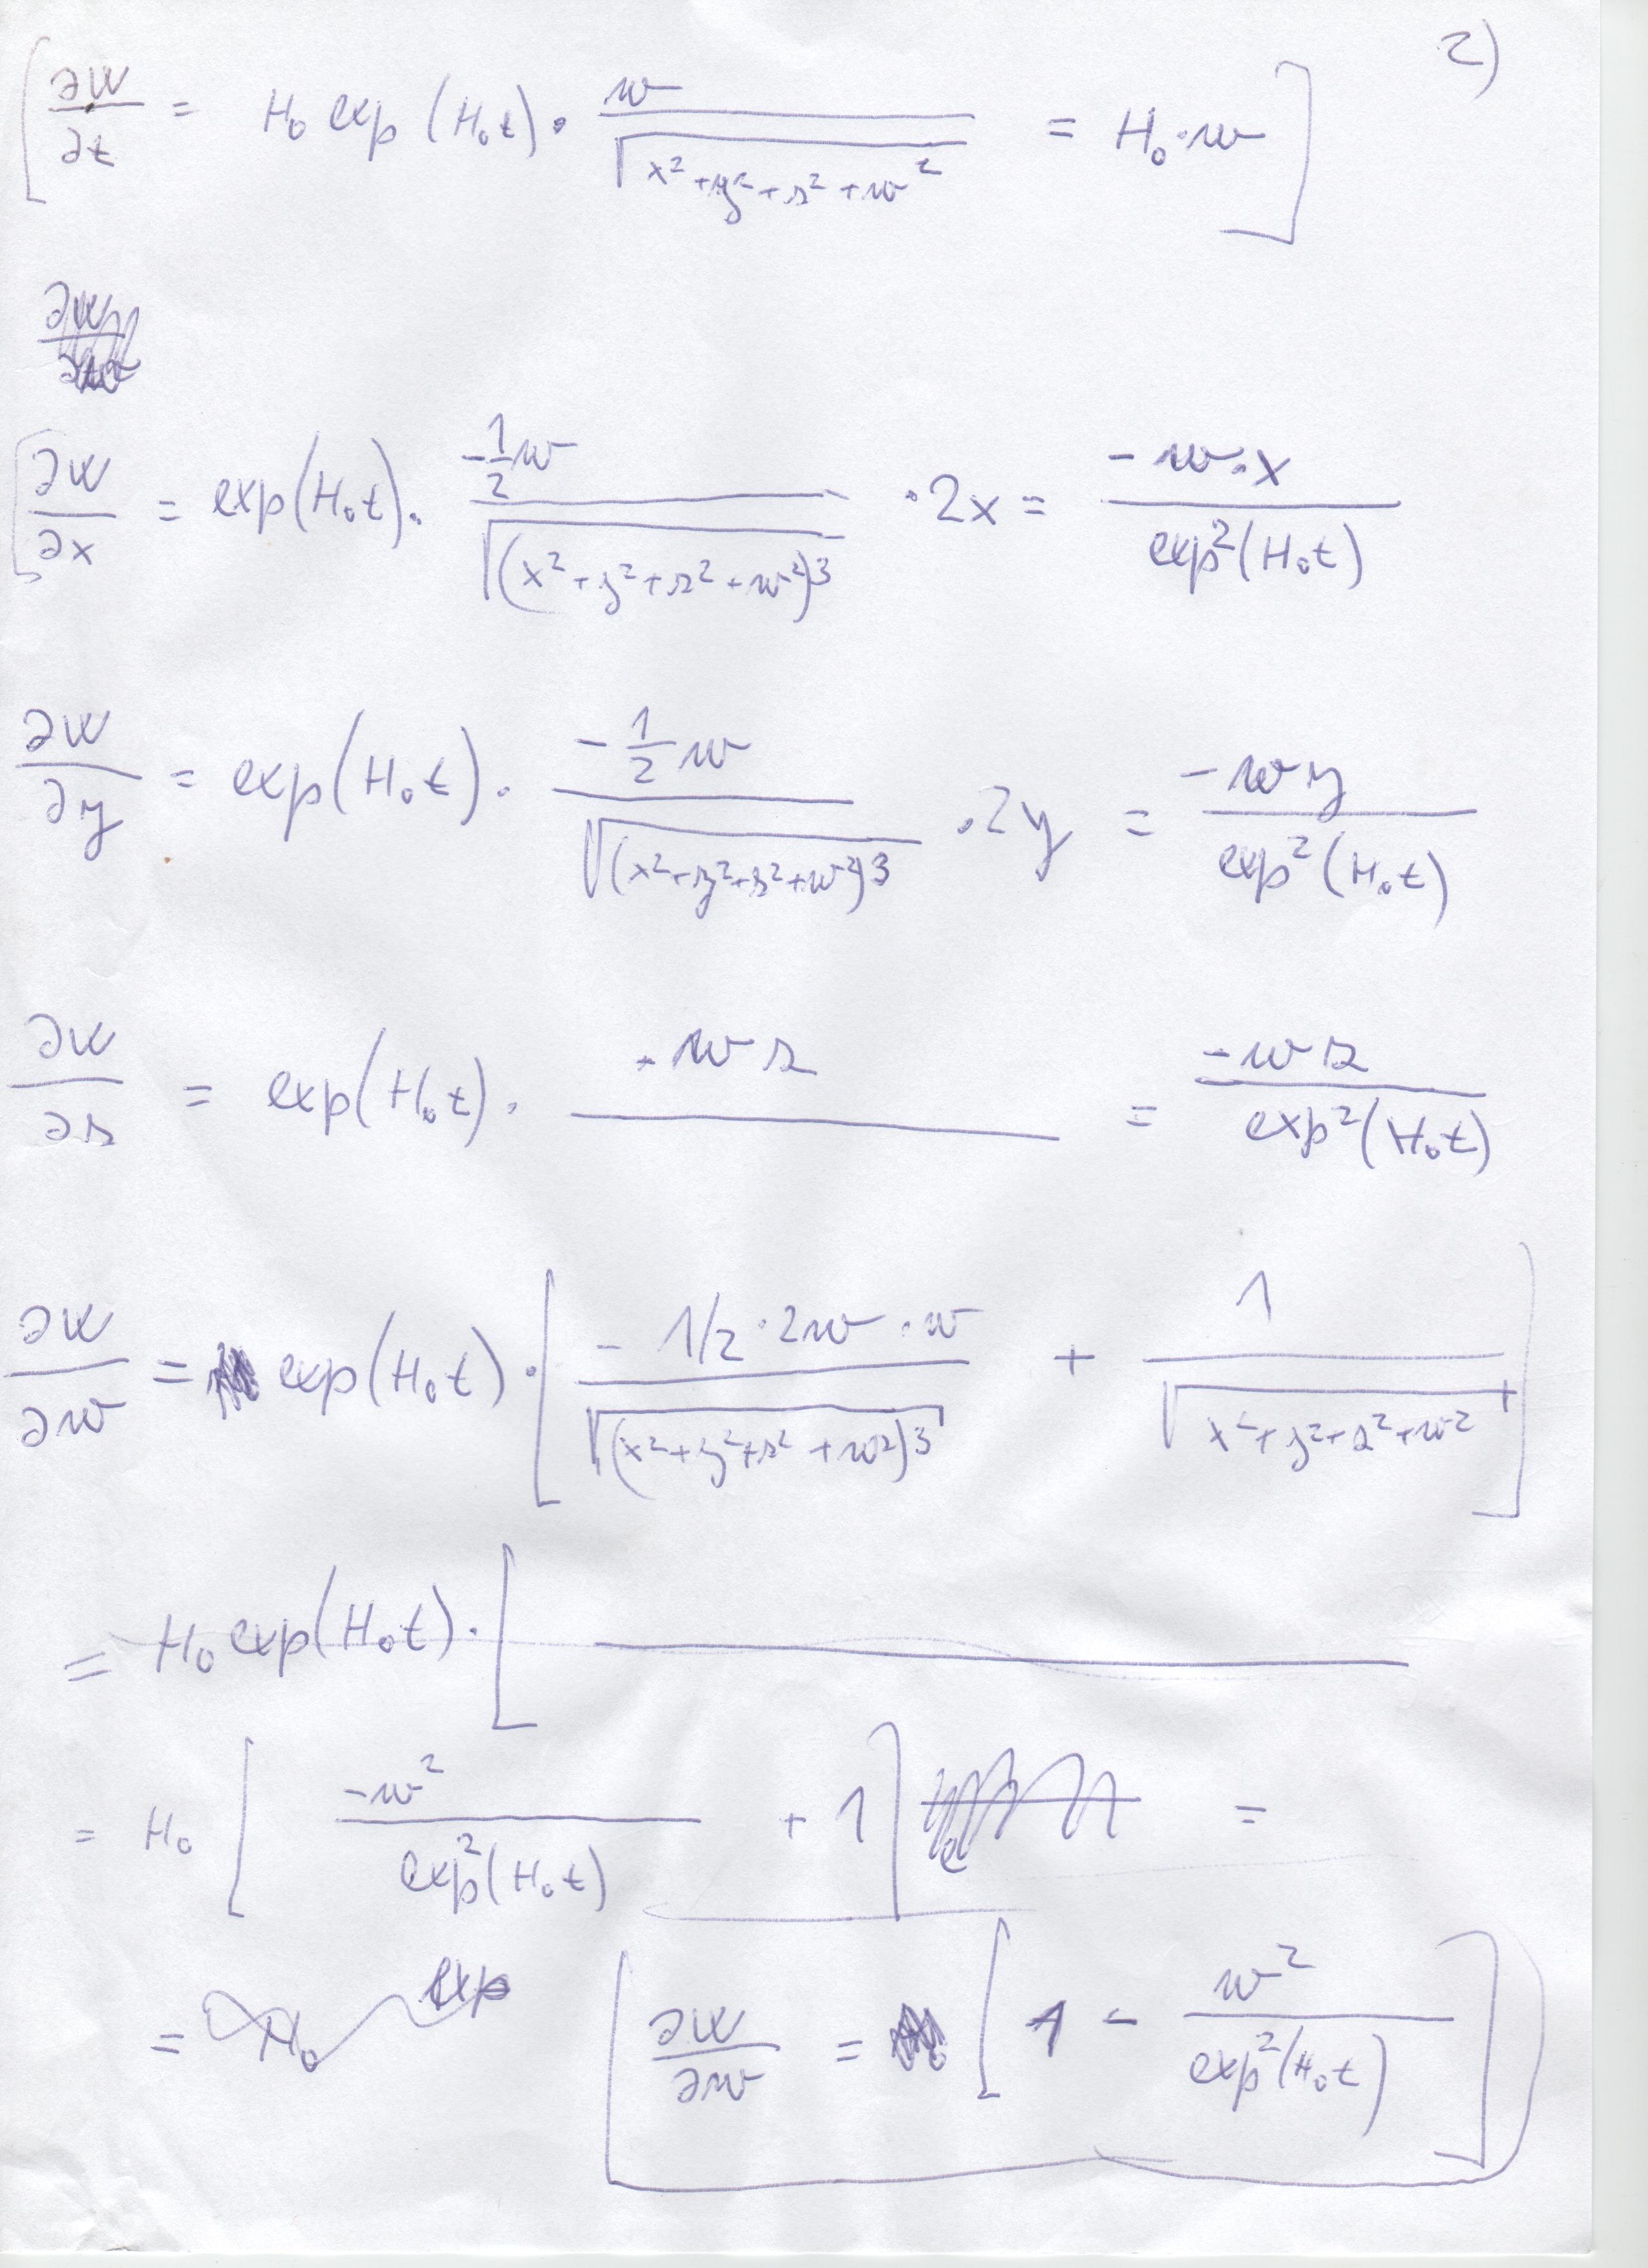 2)
[ ∂w/∂t = H₀ exp(H₀t) · w / √(x²+y²+z²+w²) = H₀·w ]
∂w/∂x = exp(H₀t) · (-1/2 w) / √((x²+y²+z²+w²)³) · 2x = -w·x / exp²(H₀t)
∂w/∂y = exp(H₀t) · (-1/2 w) / √((x²+y²+z²+w²)³) · 2y = -wy / exp²(H₀t)
∂w/∂z = exp(H₀t) · -wz / = -wz / exp²(H₀t)
∂w/∂w = exp(H₀t) · [ (-1/2·2w·w) / √((x²+y²+z²+w²)³) + 1 / √(x²+y²+z²+w²) ]
= H₀ exp(H₀t) · [
= H₀ [ -w² / exp²(H₀t) + 1 ] =
= H₀ exp
[ ∂w/∂w = [ 1 - w² / exp²(H₀t) ]